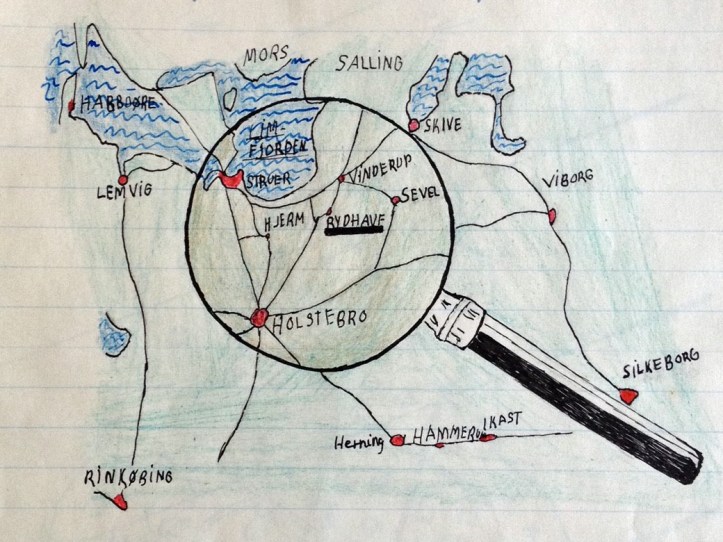 MORS
SALLING
HARBOØRE
SKIVE
LIM-
FJORDEN
LEMVIG
STRUER
VINDERUP
SEVEL
VIBORG
HJERM
RYDHAVE
HOLSTEBRO
SILKEBORG
Herning
HAMMERUM
IKAST
RINKØBING